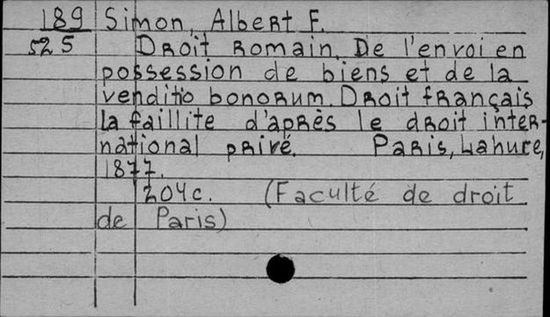 189 Simon, Albert F.
525 Droit Romain. De l'envoi en
possession de biens et de la
venditio bonorum. Droit français
la faillite d'après le droit inter-
national privé. Paris, Lahure,
1877.
204c. (Faculté de droit
de Paris)